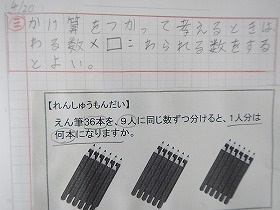 4/20
三 かけ算をつかって考えるときは
わる数×□=わられる数をする
とよい。
【れんしゅうもんだい】
えん筆36本を、9人に同じ数ずつ分けると、1人分は
何本になりますか。